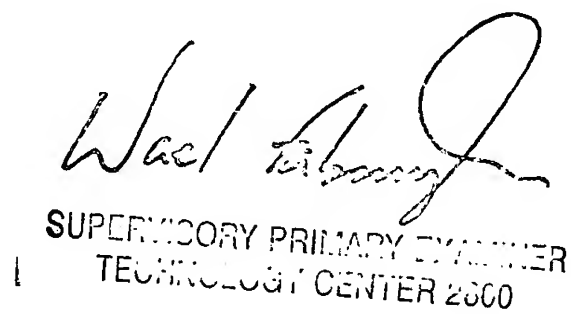 Wael
SUPERVISORY PRIMARY EXAMINER
TECHNOLOGY CENTER